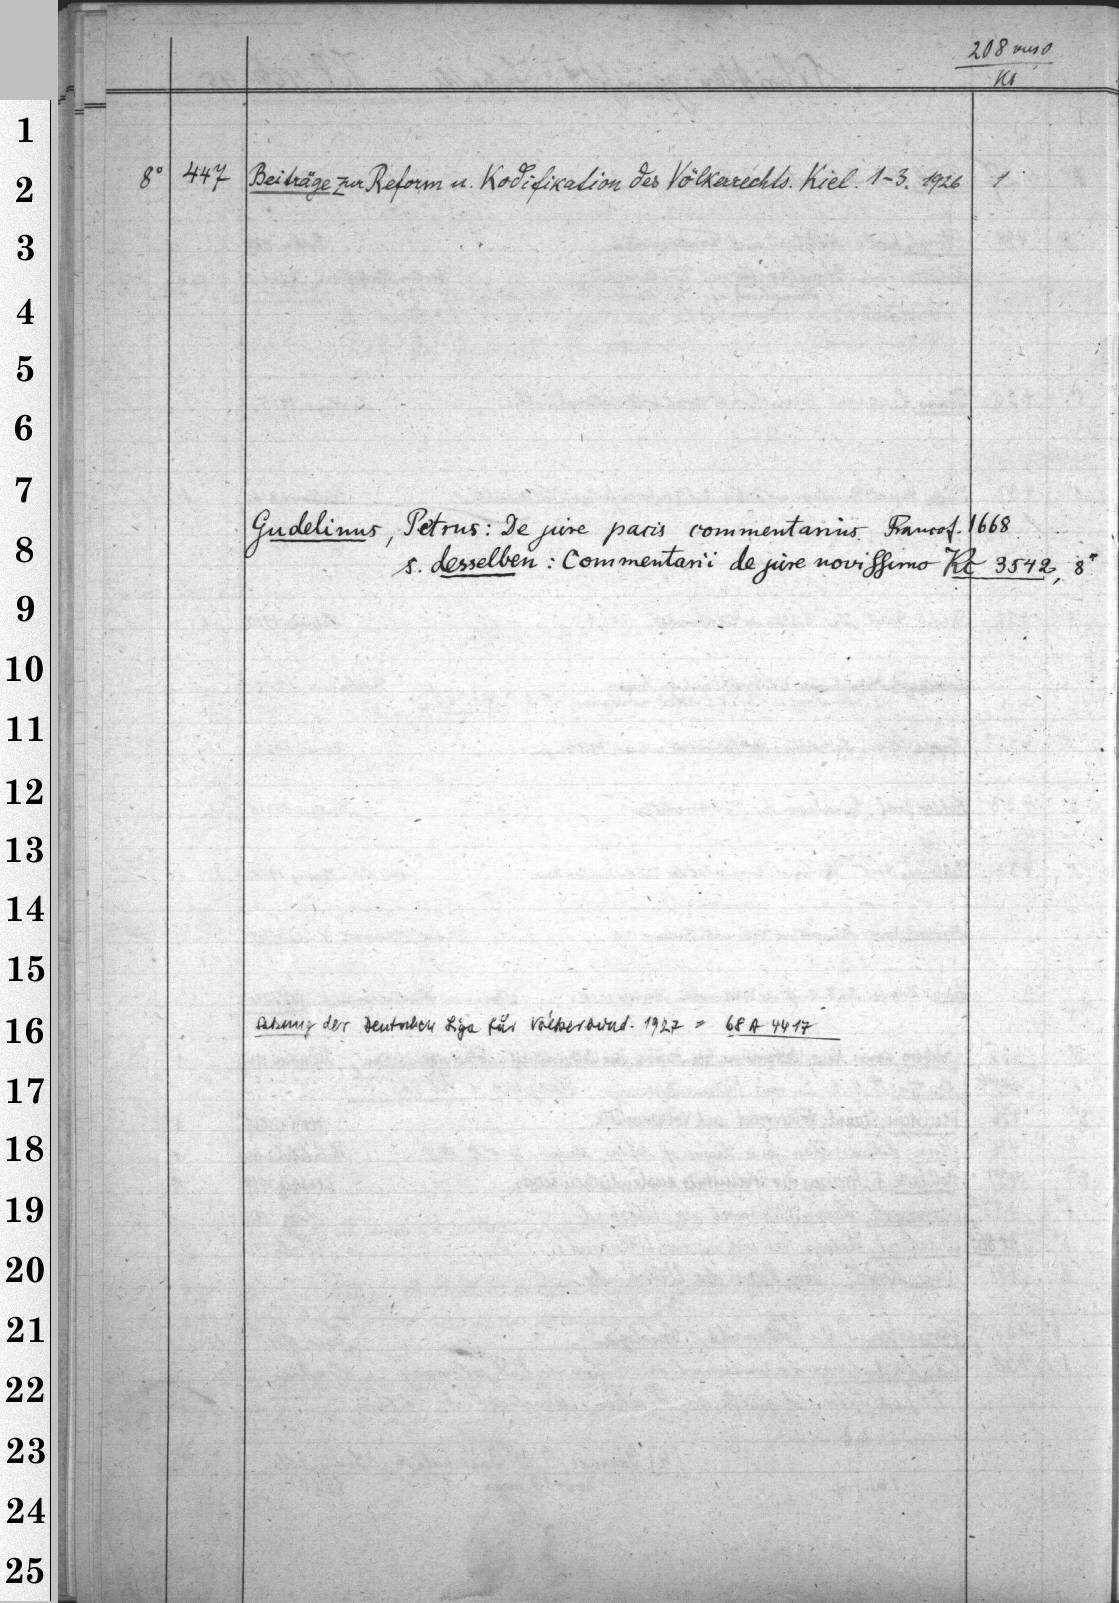 208 verso
Kt
1
2 8° 447 Beiträge zur Reform u. Kodifikation des Völkerrechts. Kiel. 1-3. 1926 1
3
4
5
6
7
Gudelinus, Petrus: De jure pacis commentarius Francof. 1668
8 s. desselben: Commentarii de jure novissimo Kc 3542, 8°
9
10
11
12
13
14
15
16 Satzung der Deutschen Liga für Völkerbund. 1927 = 68 A 4417
17
18
19
20
21
22
23
24
25